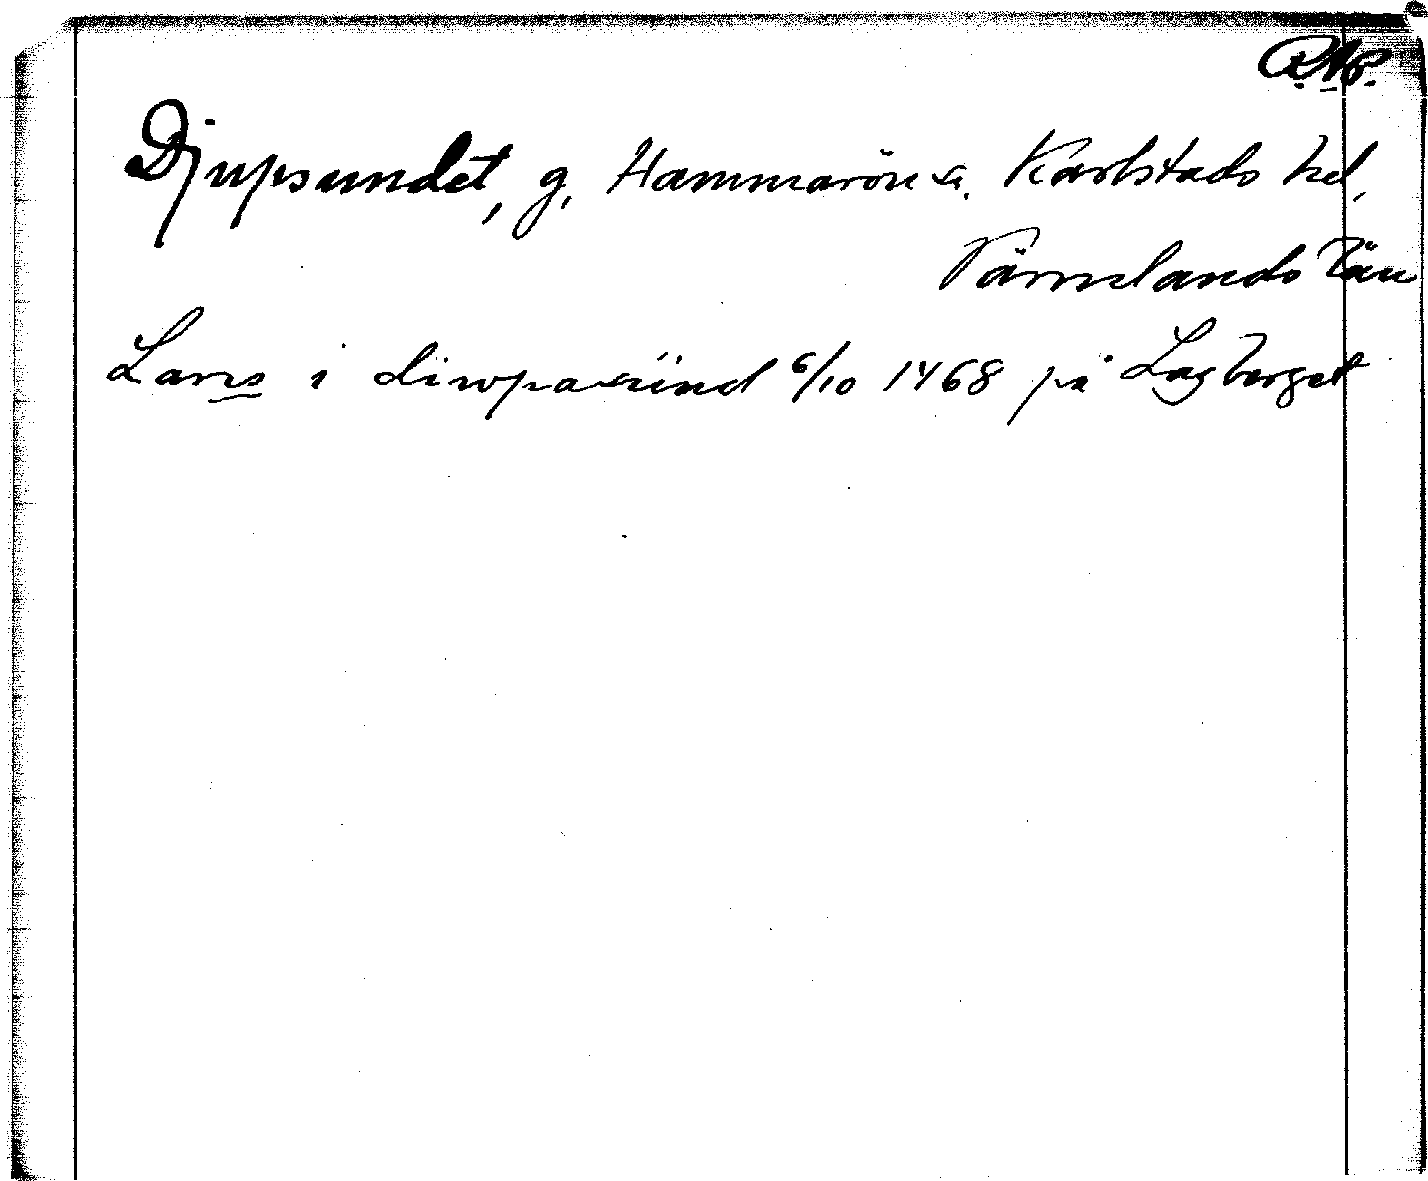 R.A.P.
Djupsundet, g. Hammarön s. Karlstads hd,
Värmlands län
Lars i diwpasund 6/10 1468 på Lagberget